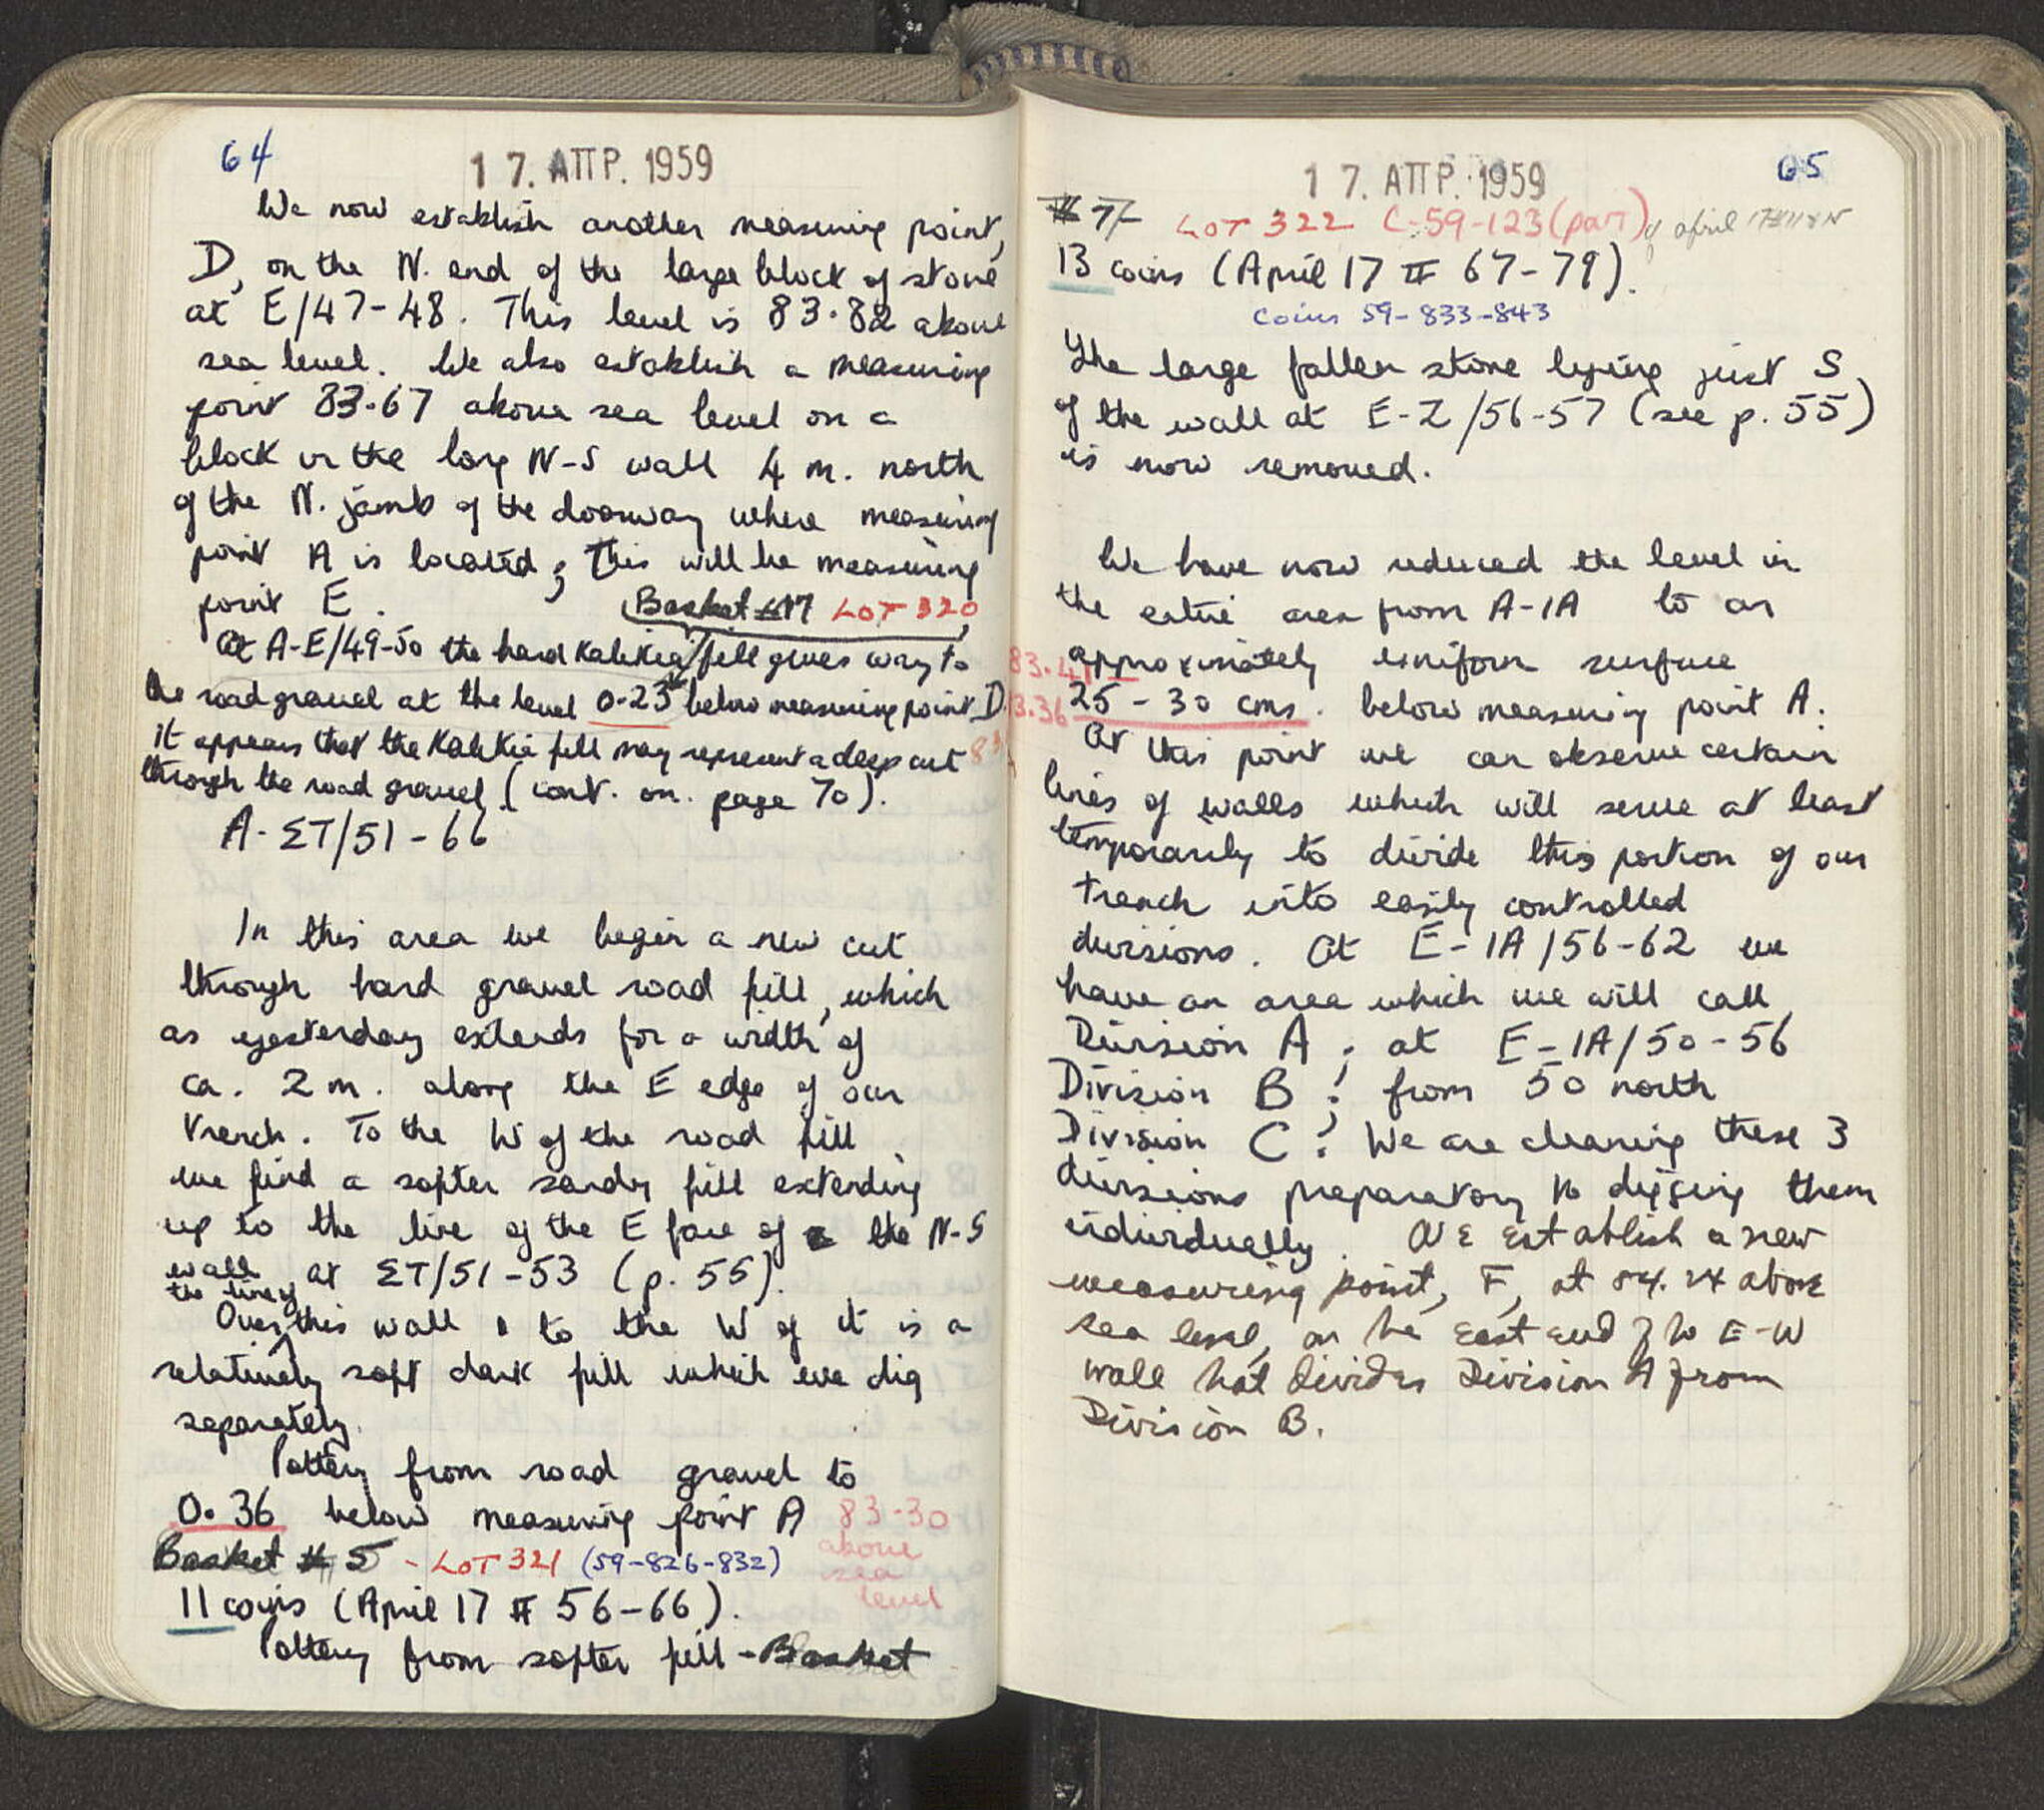 64
17. ΑΠΡ. 1959
We now establish another measuring point,
D, on the N. end of the large block of stone
at E/47-48. This level is 83.82 above
sea level. We also establish a measuring
point 83.67 above sea level on a
block in the long N-S wall 4 m. north
of the N. jamb of the doorway where measuring
point A is located; This will be measuring
point E.
Basket #17 LOT 320
At A-E/49-50 the hard Kalikia fill gives way to
the road gravel at the level 0.23 below measuring point D.
it appears that the Kalikia fill may represent a deep cut
through the road gravel (cont. on. page 70).
A-ΣΤ/51-66
In this area we begin a new cut
through hard gravel road fill, which
as yesterday extends for a width of
ca. 2 m. along the E edge of our
trench. To the W of the road fill
we find a softer sandy fill extending
up to the line of the E face of the N-S
wall at ΣΤ/51-53 (p. 55).
the line of
Over this wall to the W of it is a
relatively soft dark fill which we dig
separately.
Pottery from road gravel to
0.36 below measuring point A 83-30
above
sea
level
Basket # 5 - LOT 321 (59-826-832)
11 coins (April 17 # 56-66).
Pottery from softer fill - Basket
65
17. ΑΠΡ. 1959
# 7/- LOT 322 C-59-123 (part) april
13 coins (April 17 # 67-79).
Coins 59-833-843
The large fallen stone lying just S
of the wall at E-Z/56-57 (see p. 55)
is now removed.
We have now reduced the level in
the entire area from A-IA to an
83.41 approximately uniform surface
83.36 25-30 cms. below measuring point A.
At this point we can observe certain
lines of walls which will serve at least
temporarily to divide this portion of our
trench into easily controlled
divisions. At E-IA/56-62 we
have an area which we will call
Division A; at E-IA/50-56
Division B; from 50 north
Division C; We are cleaning these 3
divisions preparatory to digging them
individually. We establish a new
measuring point, F, at 84.24 above
sea level, on the East end of the E-W
wall that divides Division A from
Division B.